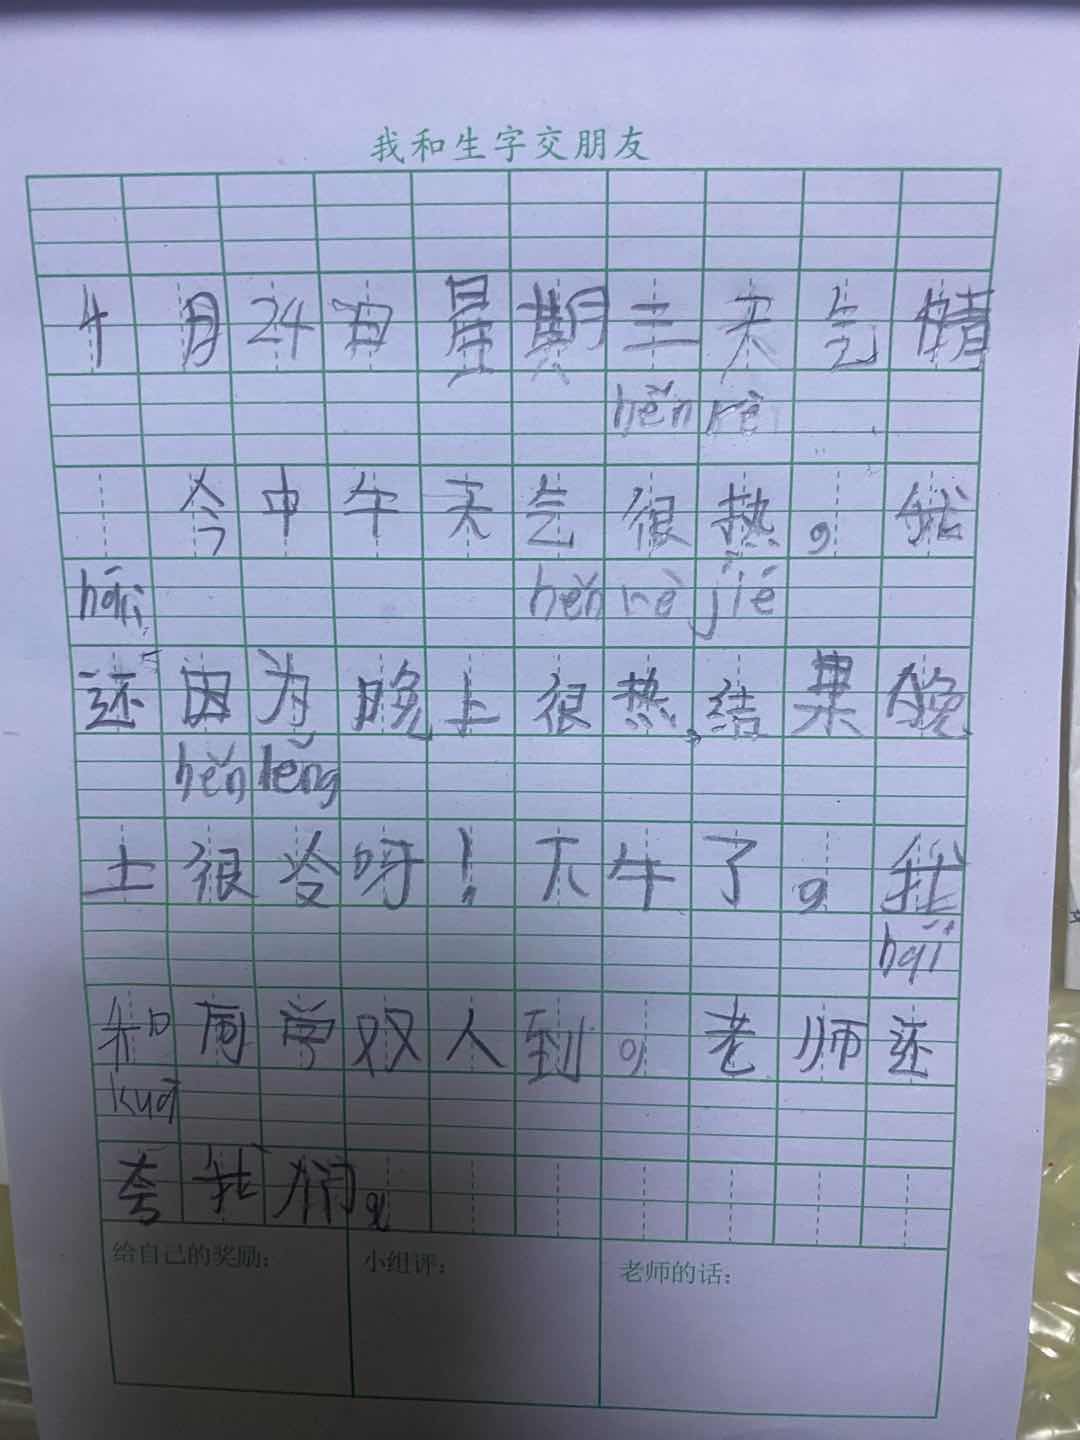 我和生字交朋友
4月24日星期三天气晴
hěn rè
今中午天气很热。我
hái hěn rè jié
还因为晚上很热,结果晚
hěn lěng
土很冷呀!下午了。我
hái
和同学双人到。老师还
kuā
夸我们。
给自己的奖励: 小组评: 老师的话: